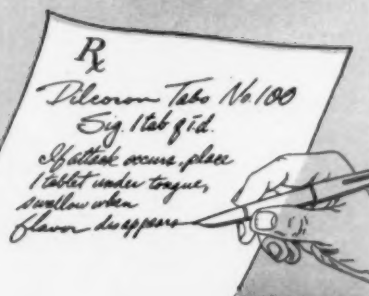 Rx
Dilcoron Tabs No. 100
Sig. 1 tab q i d.
If attack occurs, place
1 tablet under tongue,
swallow when
flavor disappears